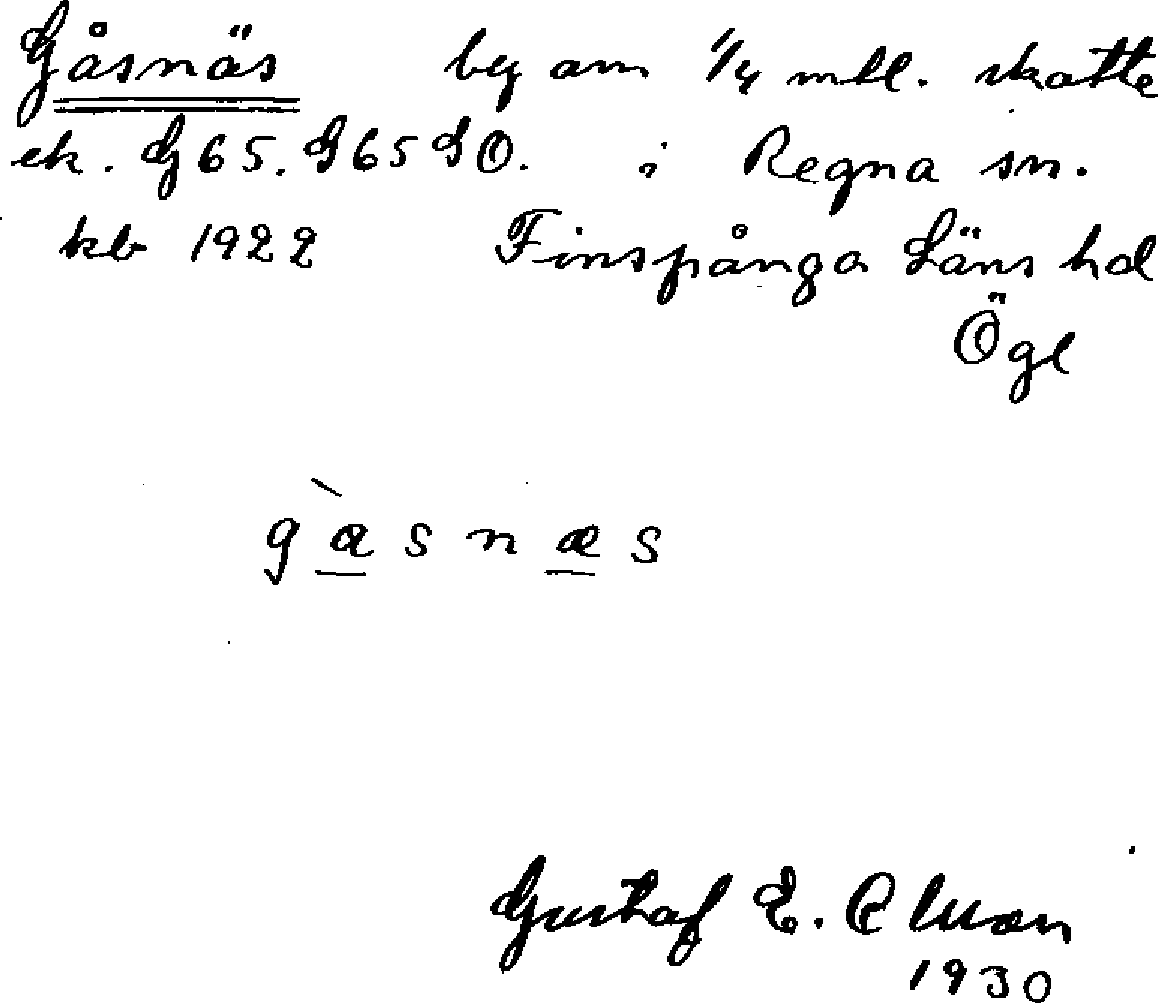 Gåsnäs by om 1/4 mtl. skatte
ek. G65. J65 SO. i Regna sn.
kb 1922 Finspånga Läns hd
Ögl
g à s n æ s
Gustaf E.
1930